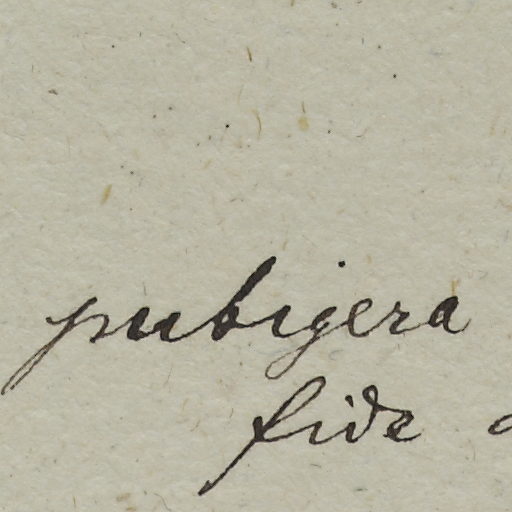 pubigera
fide